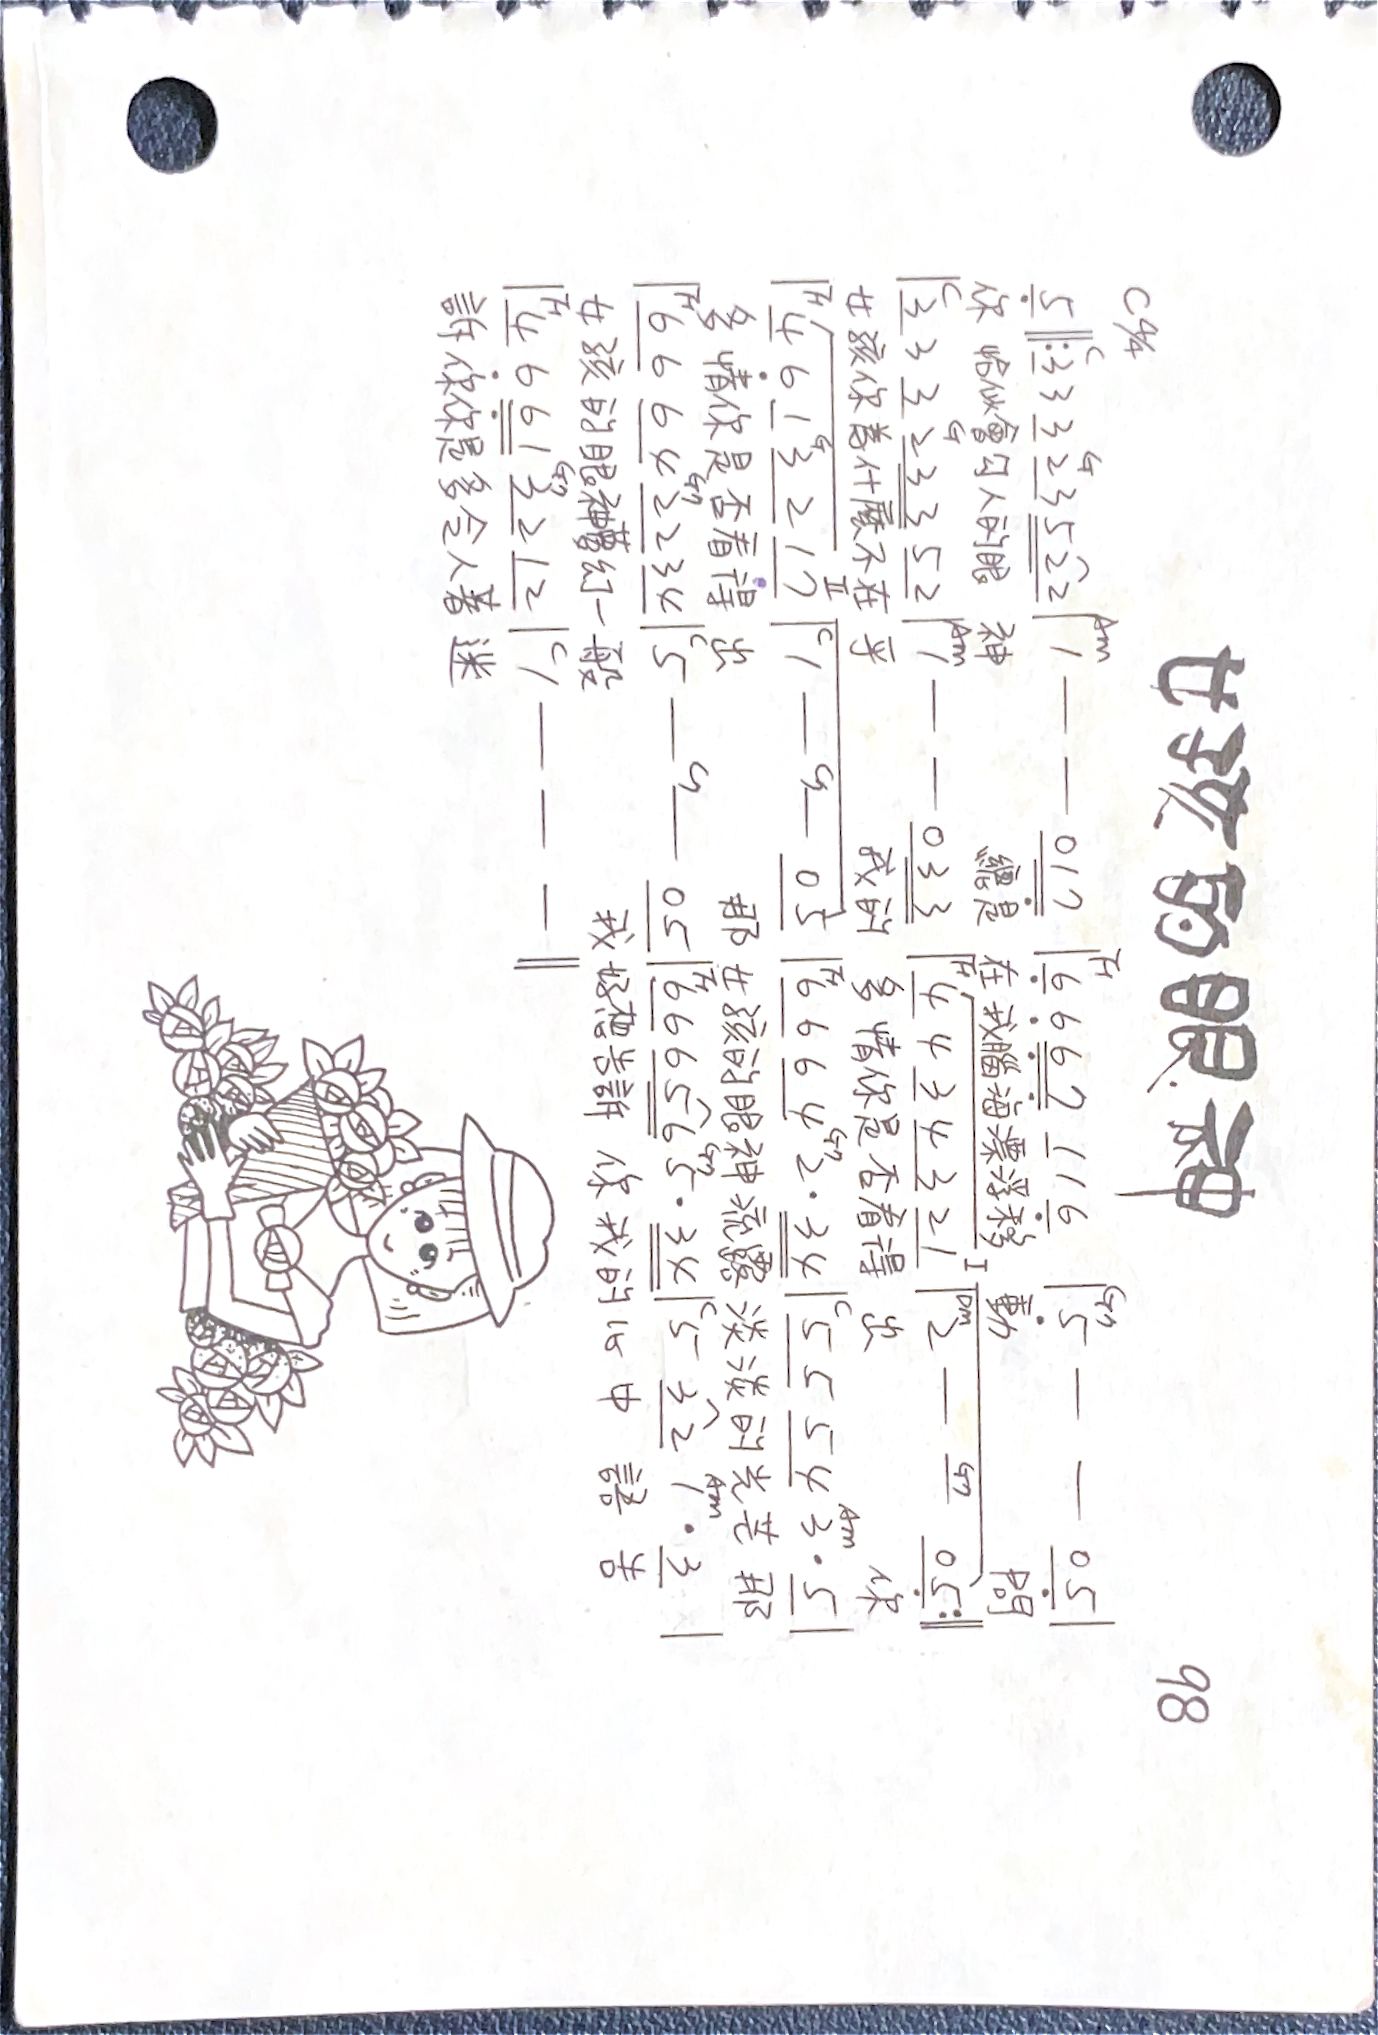 女孩的眼神
98
C 4/4
C G Am F G7
5 ‖: 3 3 3 2 3 5 2 2 | 1 — — 0 1 7 | 6 6 6 7 1 1 6 | 5 — — 0 5 |
你 恰似會勾人的眼 神 總是 在我腦海漂浮移 動 問
C G Am F I Dm G7
| 3 3 3 2 3 3 5 2 | 1 — — 0 3 3 | 4 4 3 4 3 2 1 | 2 — — 0 5 :‖
女孩你為什麼不在 乎 我的 多情你是否看得 出 你
F G II C G7 F G7 C Am
| 4 6 1 3 2 1 7 | 1 — — 0 5 | 6 6 6 4 2 · 3 4 | 5 5 5 4 3 · 5 |
多情你是否看得 出 那 女孩的眼神流露 淡淡的光芒 那
F G7 C G7 F G7 C Am
| 6 6 6 4 2 2 3 4 | 5 — — 0 5 | 6 6 6 5 6 5 · 3 4 | 5 3 2 1 · 3 |
女孩的眼神夢幻一 般 我 好想告訴 你我的心中 語 告
F G7 C
| 4 6 6 1 3 2 1 2 | 1 — — — ‖
訴你你是多令人著 迷